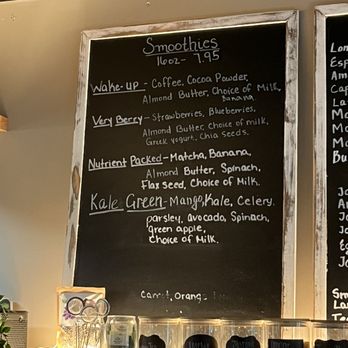 Smoothies
16oz - 7.95
Wake-up - Coffee, Cocoa Powder,
Almond Butter, Choice of Milk,
Banana
Very Berry - Strawberries, Blueberries,
Almond Butter, Choice of milk,
Greek yogurt, Chia seeds.
Nutrient Packed - Matcha, Banana,
Almond Butter, Spinach,
Flax seed, Choice of Milk.
Kale Green - Mango, Kale, Celery.
parsley, avocado, Spinach,
green apple,
Choice of Milk.
Carrot, Orange